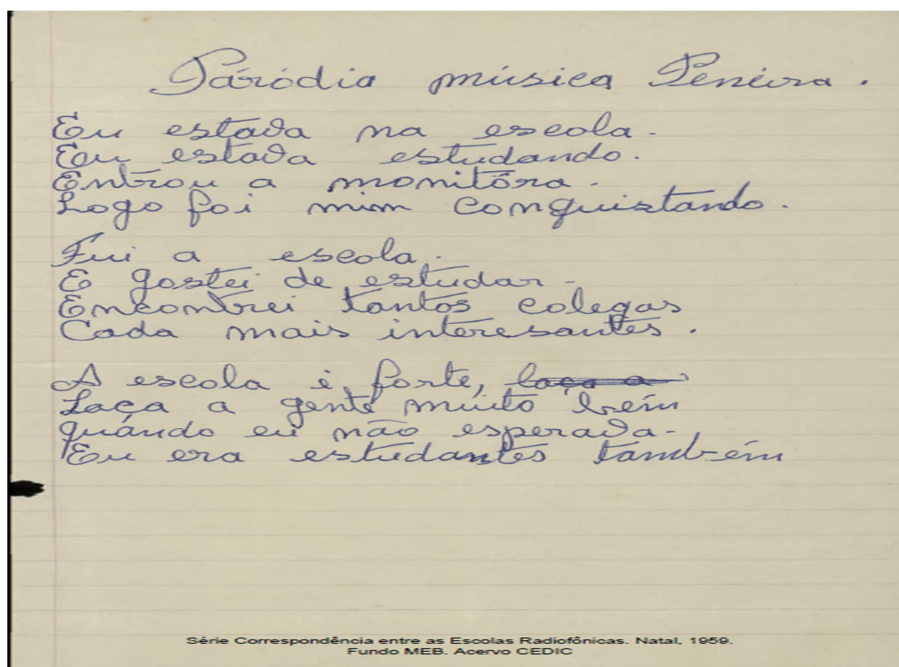 Paródia música Peneira.
Eu estava na escola.
Eu estava estudando.
Entrou a monitôra.
Logo foi mim conquistando.
Fui a escola.
E gostei de estudar.
Encontrei tantos colegas
Cada mais interesantes.
A escola é, forte, laça a
Laça a gente muito bem
quando eu não esperava.
Eu era estudantes também
Série Correspondência entre as Escolas Radiofônicas. Natal, 1959.
Fundo MEB. Acervo CEDIC